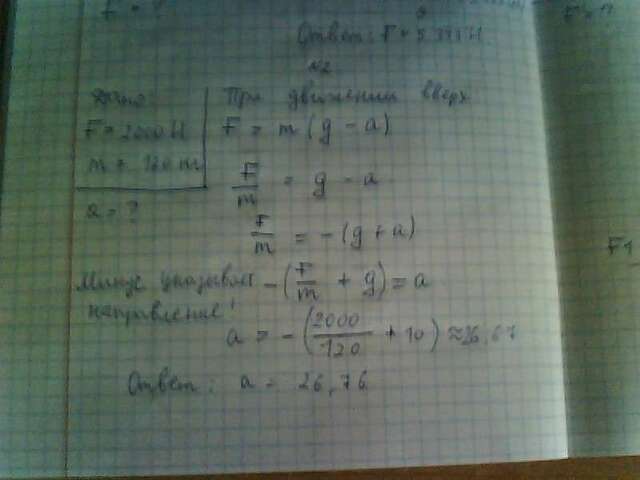 Ответ: F =
№2.
Дано:
F = 2000 Н
m = 120 m
a = ?
При движении вверх
F = m (g - a)
F/m = g - a
F/m = -(g + a)
Минус указывает
направление!
-(F/m + g) = a
a = -(2000/120 + 10) ≈ 26,67
Ответ: a = 26,76
F1